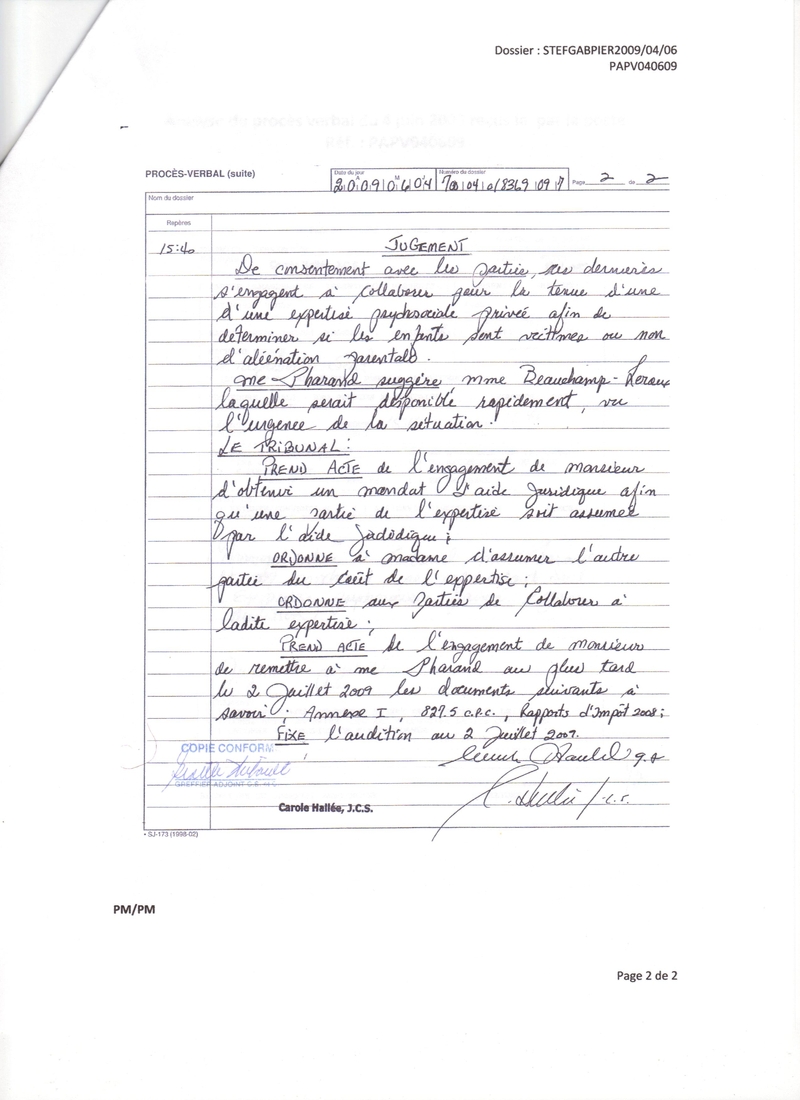 Dossier : STEFGABPIER2009/04/06
PAPV040609
PROCÈS-VERBAL (suite)
Date du jour
Numéro du dossier
A M J
2009 06 04
Page 2 de 2
Nom du dossier
Repères
15:40
JUGEMENT
De consentement avec les parties, ces dernières
s'engagent à collaborer pour la tenue d'une
d'une expertise psychosociale privée afin de
déterminer si les enfants sont victimes ou non
d'aliénation parentale.
Me Pharand suggère Mme Beauchamp-Leroux
laquelle serait disponible rapidement, vu
l'urgence de la situation.
LE TRIBUNAL :
PREND ACTE de l'engagement de monsieur
d'obtenir un mandat d'aide juridique afin
qu'une partie de l'expertise soit assumée
par l'aide juridique ;
ORDONNE à madame d'assumer l'autre
partie du coût de l'expertise ;
ORDONNE aux parties de collaborer à
ladite expertise ;
PREND ACTE de l'engagement de monsieur
de remettre à me Pharand au plus tard
le 2 Juillet 2009 les documents suivants à
savoir : Annexe I, 827.5 c.p.c., Rapports d'Impôt 2008 ;
FIXE l'audition au 2 Juillet 2009.
COPIE CONFORM
GREFFIER ADJOINT
Carole Hallée, J.C.S.
• SJ-173 (1998-02)
PM/PM
Page 2 de 2